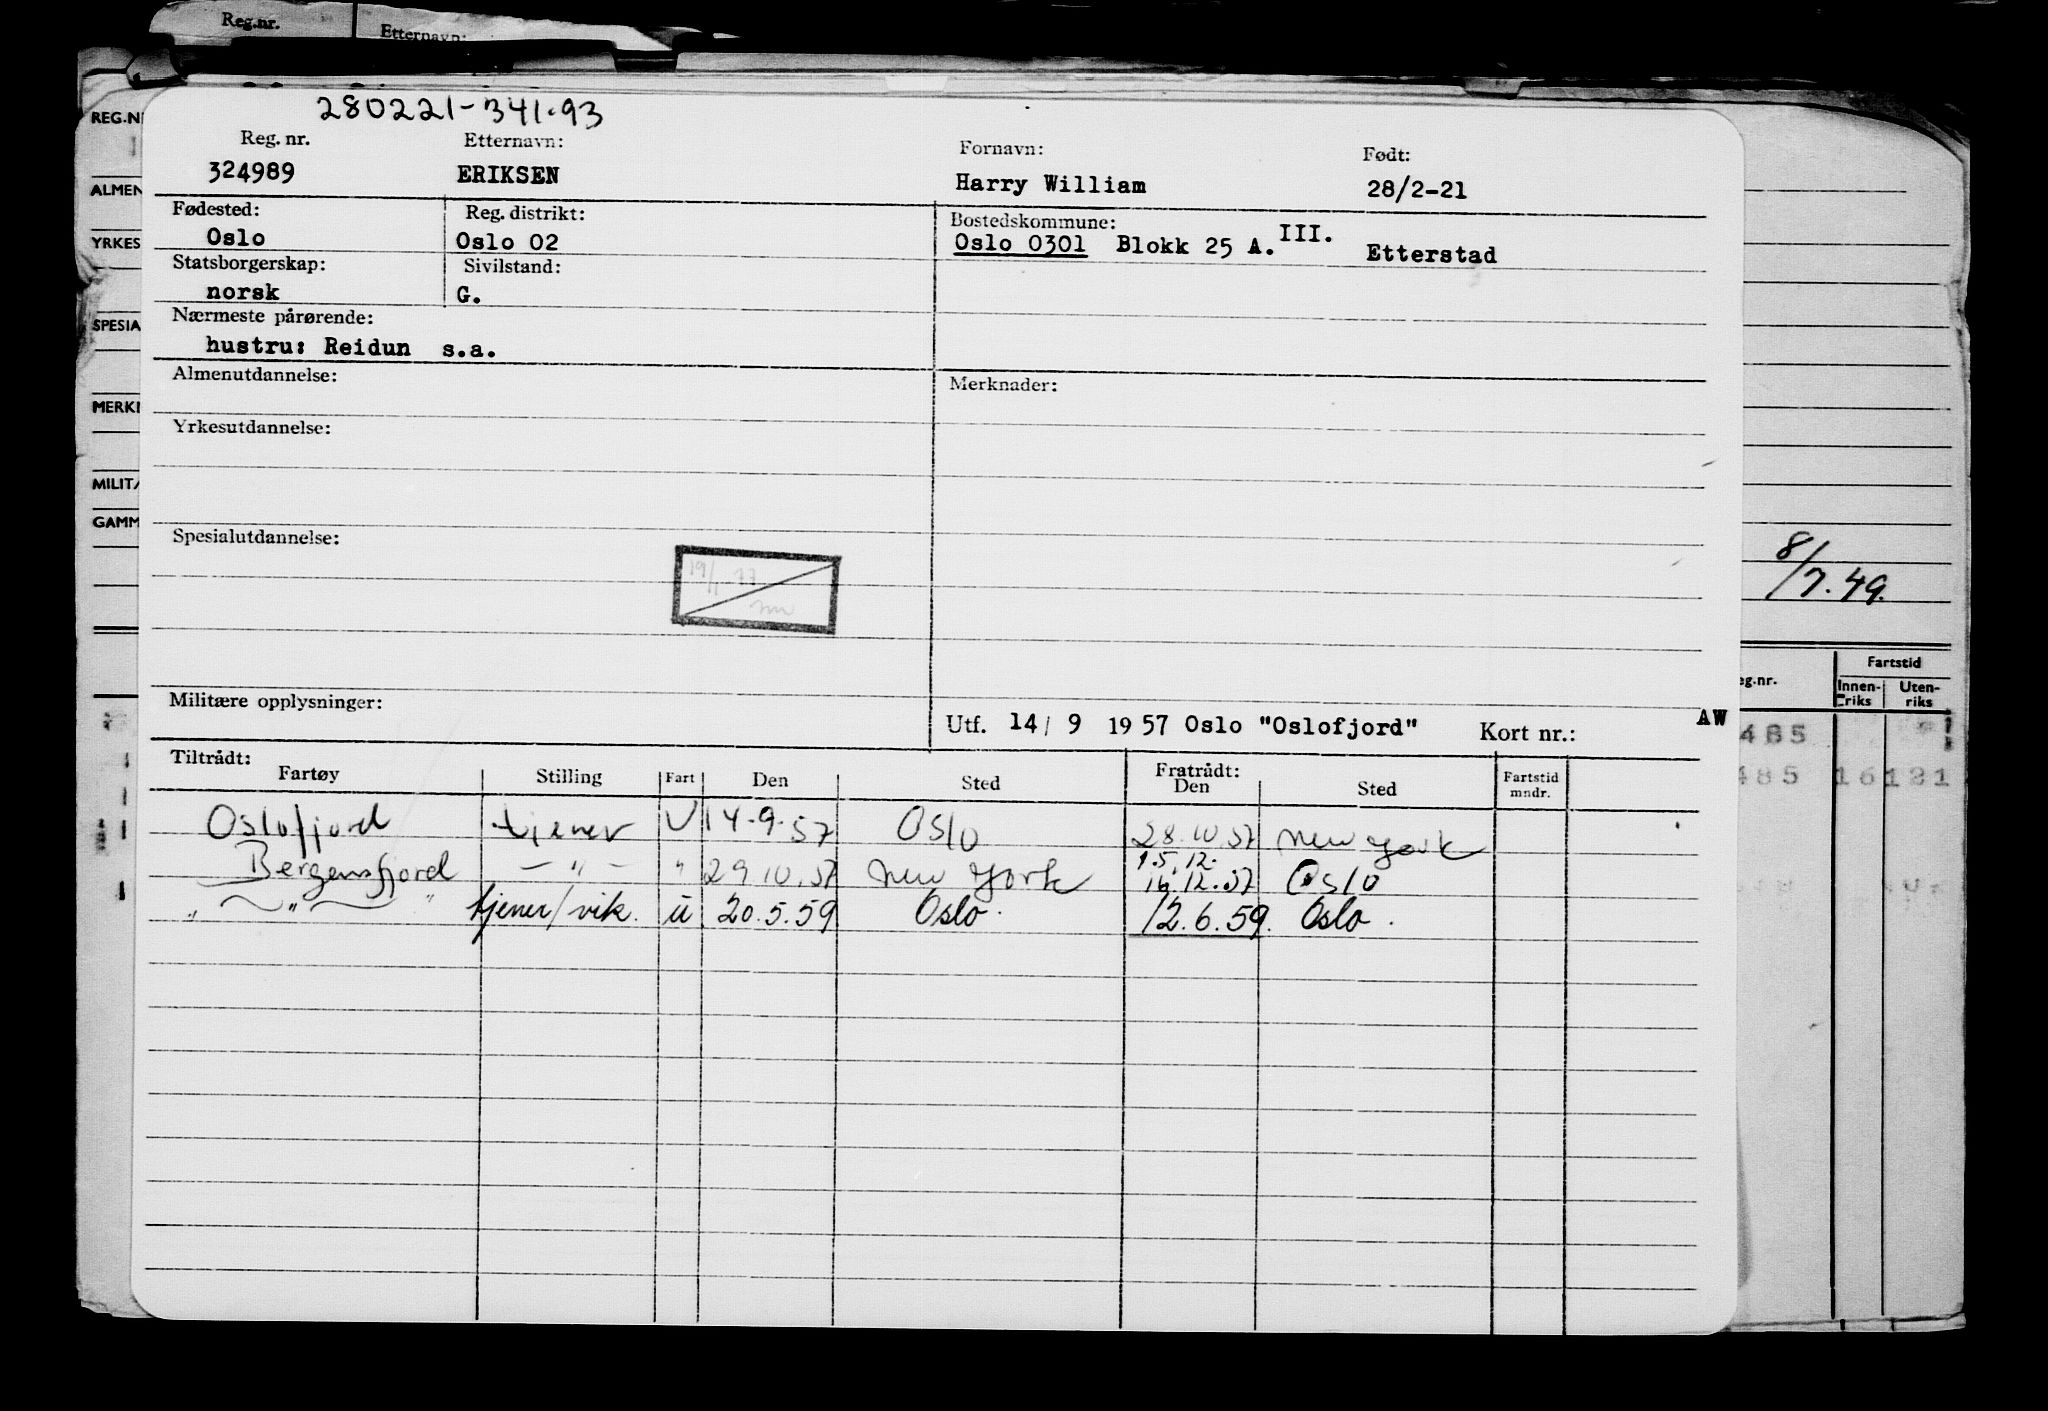 Reg.nr. Etternavn:
280221-341.93
REG.N
Reg. nr. Etternavn: Fornavn: Født:
324989 ERIKSEN Harry William 28/2-21
ALMEN
Fødested: Reg. distrikt: Bostedskommune:
YRKES
Oslo Oslo 02 Oslo 0301 Blokk 25 A. III. Etterstad
Statsborgerskap: Sivilstand:
norsk G.
Nærmeste pårørende:
SPESIA
hustru: Reidun s.a.
Almenutdannelse: Merknader:
MERK
Yrkesutdannelse:
MILIT
GAMM
Spesialutdannelse:
8/7.49.
Fartstid
eg.nr. Innen-riks Uten-riks
Militære opplysninger:
Utf. 14/ 9 1957 Oslo "Oslofjord" Kort nr.: AW
485
485 16 121
Tiltrådt: Fratrådt:
Fartøy Stilling Fart Den Sted Den Sted Fartstid mndr.
Oslofjord tjener U 14.9.57 Oslo 28.10.57 New York
Bergensfjord - " - " 29.10.57 New York 16.12.57 Oslo
" " " tjener/vik. u 20.5.59 Oslo. 12.6.59. Oslo.